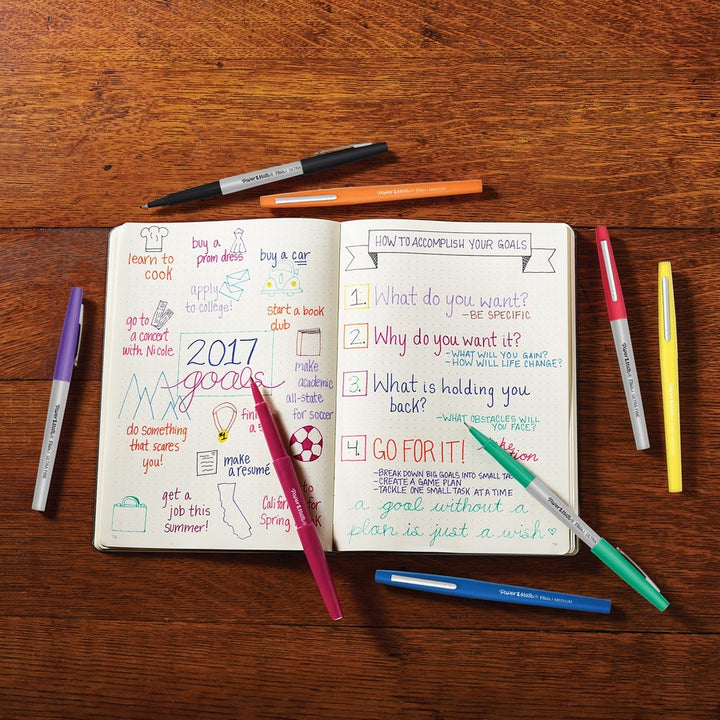 learn to
cook
buy a
prom dress
buy a car
apply
to college!
go to
a concert
with Nicole
start a book
club
2017
goals
make
academic
all-state
for soccer
do something
that scares
you!
make
a resumé
get a
job this
summer!
for
Spring
HOW TO ACCOMPLISH YOUR GOALS
1. What do you want?
- BE SPECIFIC
2. Why do you want it?
- WHAT WILL YOU GAIN?
- HOW WILL LIFE CHANGE?
3. What is holding you
back?
- WHAT OBSTACLES WILL
YOU FACE?
4. GO FOR IT!
- BREAK DOWN BIG GOALS INTO SMALL
- CREATE A GAME PLAN
- TACKLE ONE SMALL TASK AT A TIME
a goal without a
plan is just a wish
Paper Mate Flair / ULTRA FINE
Paper Mate Flair / MEDIUM
Paper Mate Flair / MEDIUM